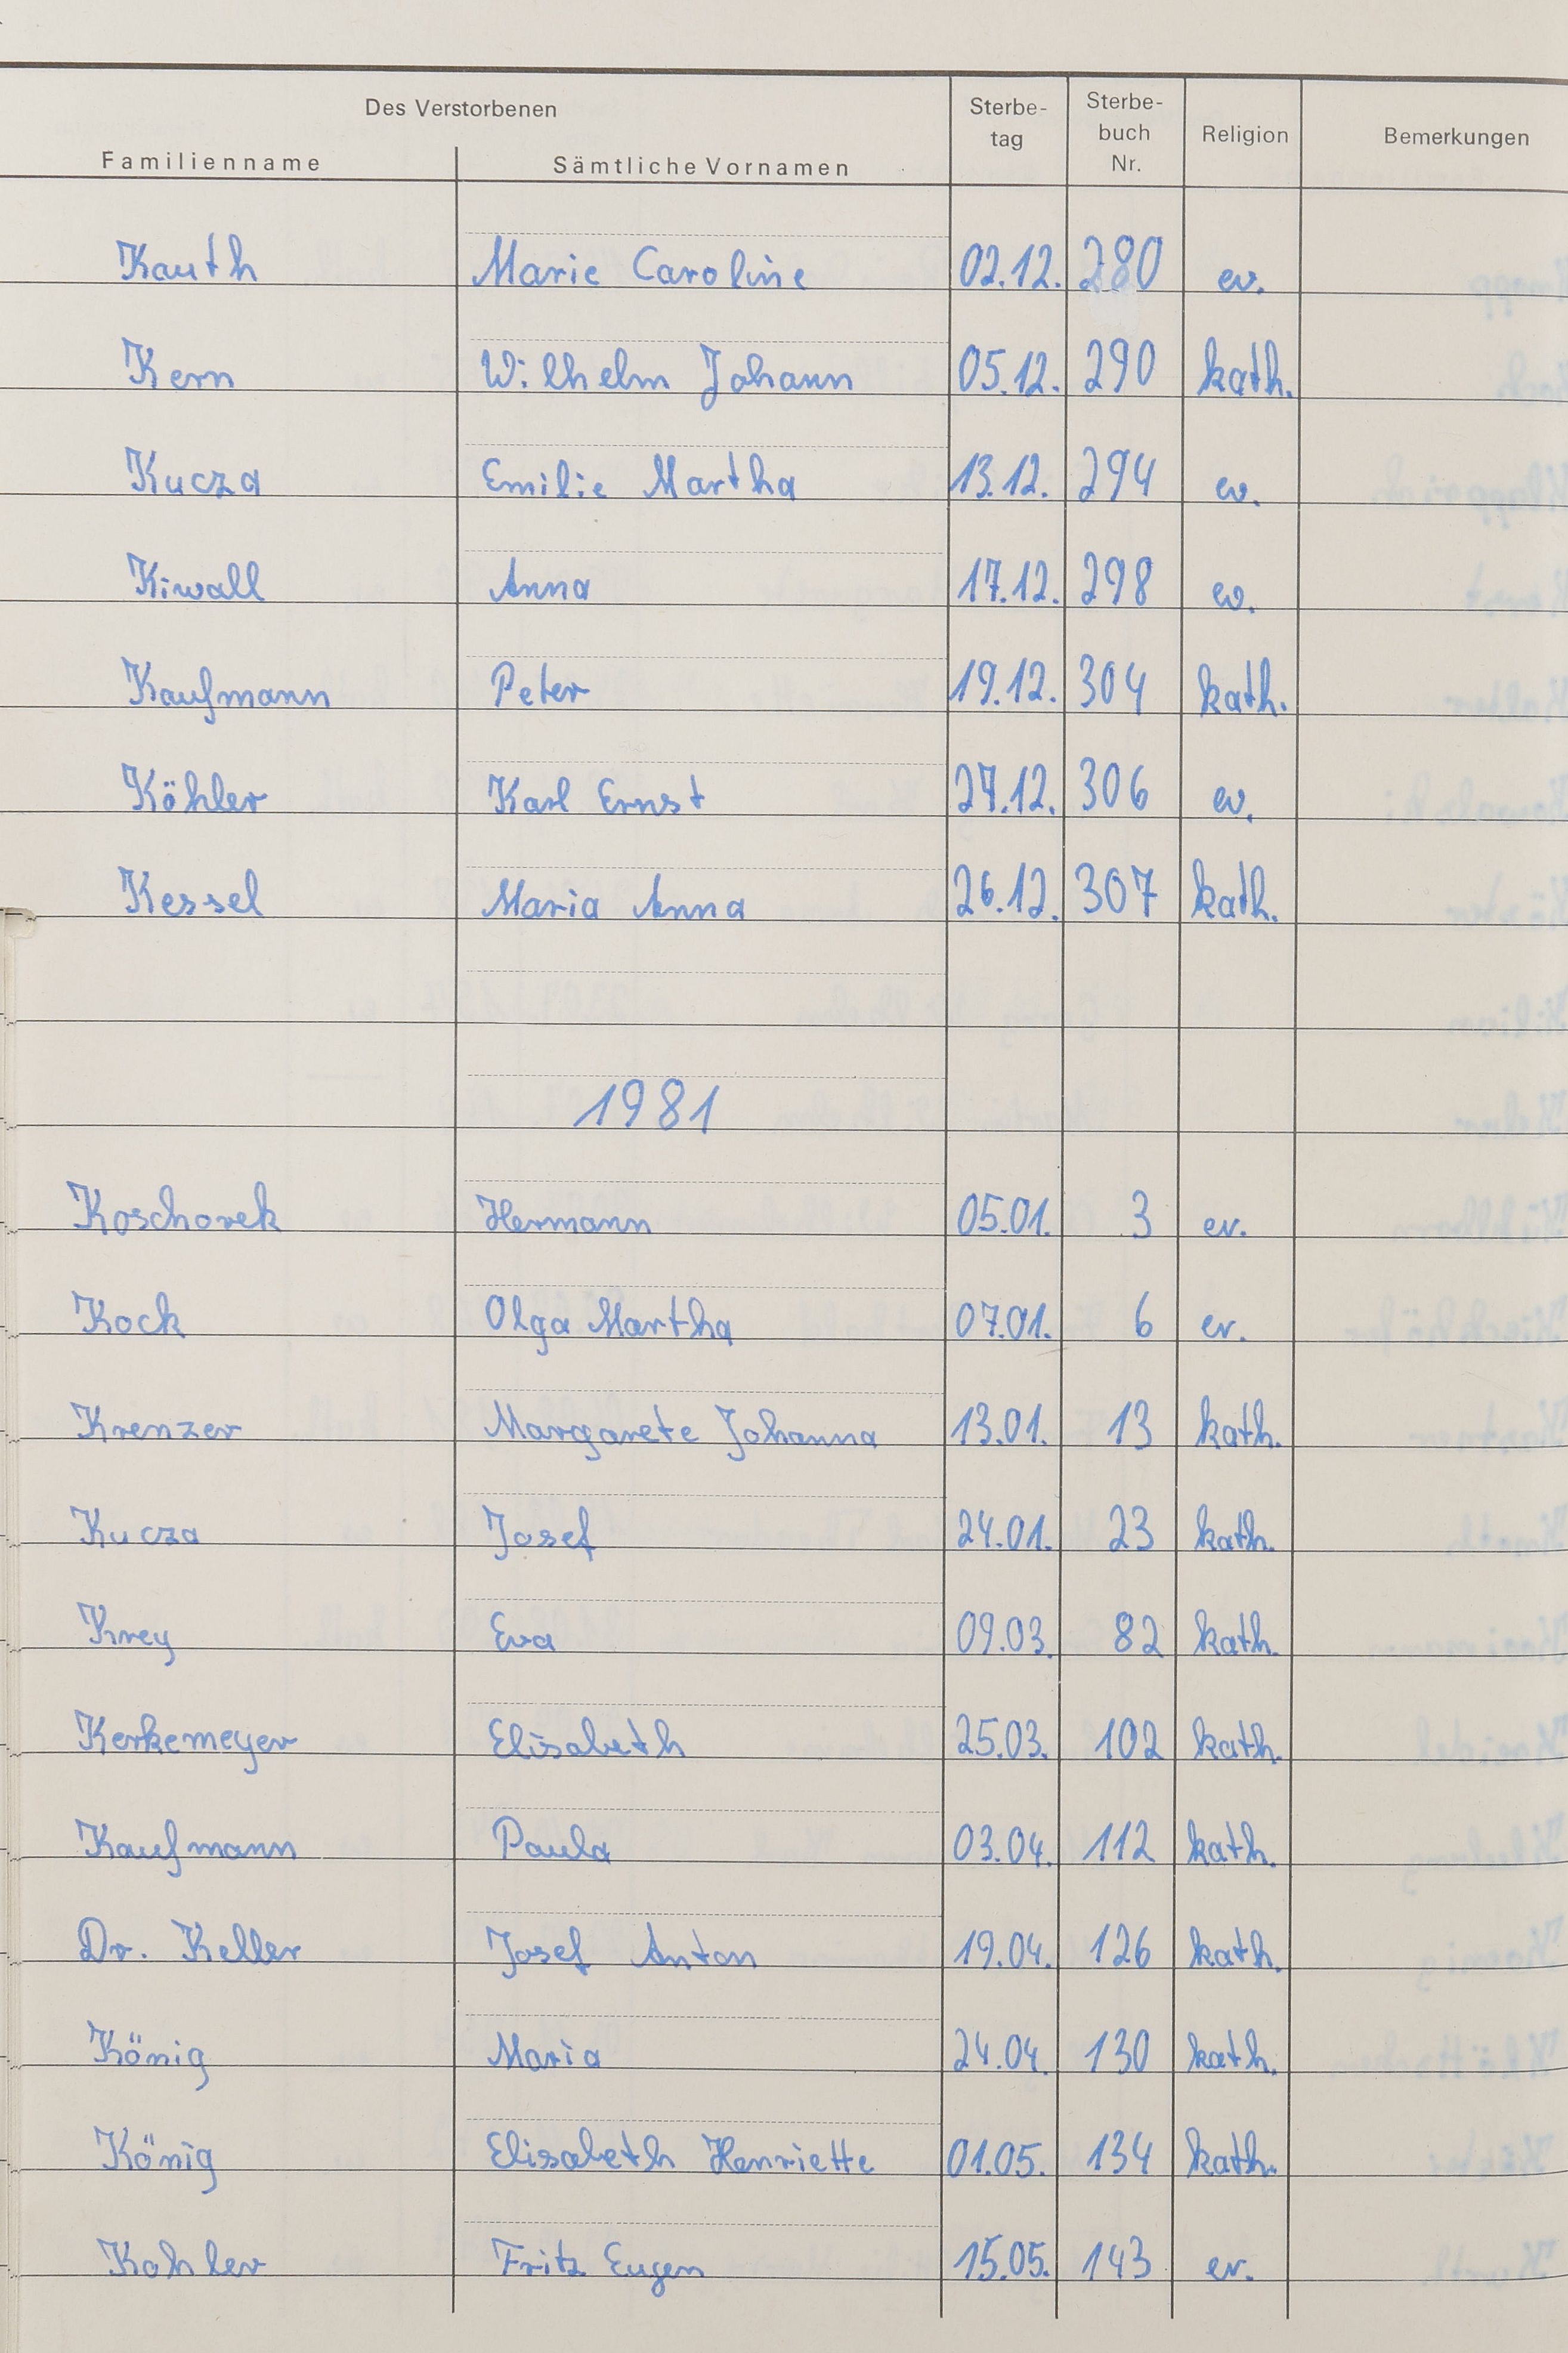 Des Verstorbenen
Familienname Sämtliche Vornamen Sterbe-tag Sterbe-buch Nr. Religion Bemerkungen
Kauth Marie Caroline 02.12. 280 ev.
Kern Wilhelm Johann 05.12. 290 kath.
Kucza Emilie Martha 13.12. 294 ev.
Kiwall Anna 17.12. 298 ev.
Kaufmann Peter 19.12. 304 kath.
Köhler Karl Ernst 27.12. 306 ev.
Kessel Maria Anna 26.12. 307 kath.
1981
Koschorek Hermann 05.01. 3 ev.
Kock Olga Martha 07.01. 6 ev.
Krenzer Margarete Johanna 13.01. 13 kath.
Kucza Josef 24.01. 23 kath.
Krey Eva 09.03. 82 kath.
Kerkemeyer Elisabeth 25.03. 102 kath.
Kaufmann Paula 03.04. 112 kath.
Dr. Keller Josef Anton 19.04. 126 kath.
König Maria 24.04. 130 kath.
König Elisabeth Henriette 01.05. 134 kath.
Kohler Fritz Eugen 15.05. 143 ev.